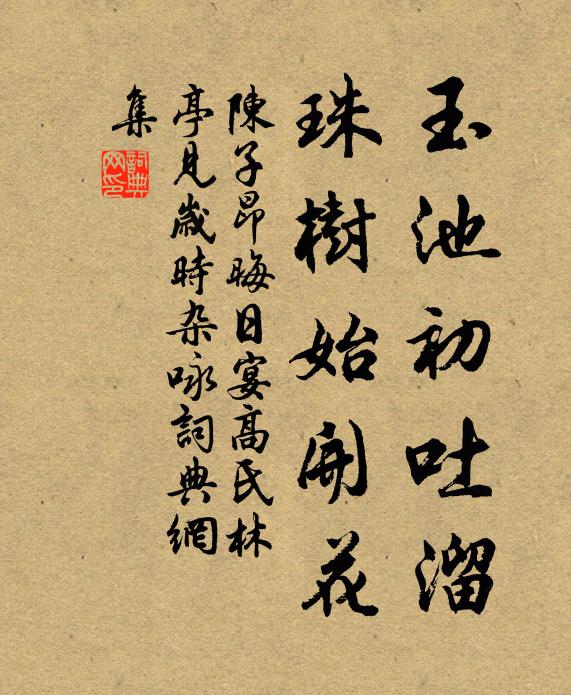 玉池初吐溜
珠樹始開花
陳子昂晦日宴高民林
亭見歲時杂咏詞典網
集
詞典網印